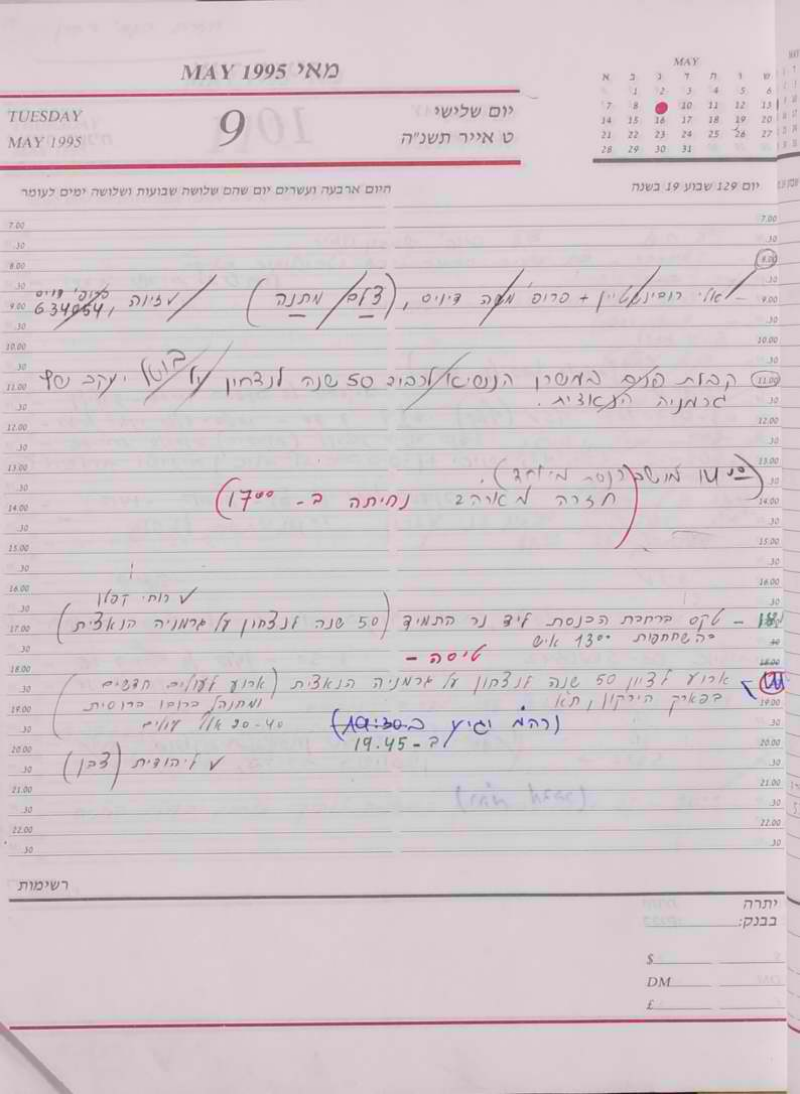 MAY 1995 מאי
TUESDAY
MAY 1995
9
יום שלישי
ט אייר תשנ"ה
MAY
א ב ג ד ה ו ש
1 2 3 4 5 6
7 8 10 11 12 13
14 15 16 17 18 19 20
21 22 23 24 25 26 27
28 29 30 31
היום ארבעה ועשרים יום שהם שלושה שבועות ושלושה ימים לעומר
יום 129 שבוע 19 בשנה
- אלי רובינשטיין + פרופ' משה דיויס, (צלם/מתנה)
634054
קבלת פנים במשכן הנשיא לרגל 50 שנה לנצחון על
גרמניה הנאצית.
(מושב כנסת מיוחד).
חזרה מארה"ב נחיתה ב- 17:00)
✓ רוחי קפלן
- טקס ברחבת הכנסת ליד נר התמיד (50 שנה לנצחון על גרמניה הנאצית)
בהשתתפות 1300 איש
טיסה -
ארוע לציון 50 שנה לנצחון על גרמניה הנאצית (ארוע לעולים חדשים
בפארק הירקון, ת"א
ומתנהל ברובו ברוסית
20-40 אלף עולים
(רה"מ יגיע ב. 19:30)
ב- 19.45
✓ ליהודית (צבן)
7.00
.30
8.00
.30
9.00
.30
10.00
.30
11.00
.30
12.00
.30
13.00
.30
14.00
.30
15.00
.30
16.00
.30
17.00
.30
18.00
.30
19.00
.30
20.00
.30
21.00
.30
22.00
.30
רשימות
יתרה
בבנק:
$
DM
£